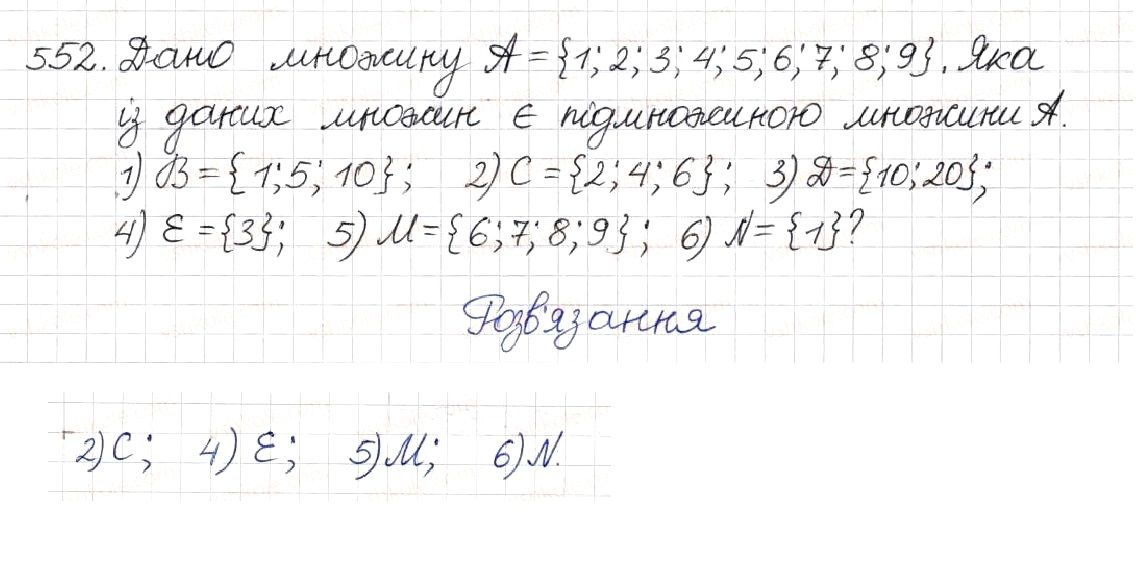 552. Дано множину A = {1; 2; 3; 4; 5; 6; 7; 8; 9}. Яка
із даних множин є підмножиною множини A.
1) B = {1; 5; 10}; 2) C = {2; 4; 6}; 3) D = {10; 20};
4) E = {3}; 5) M = {6; 7; 8; 9}; 6) N = {1}?
Розв'язання
2) C; 4) E; 5) M; 6) N.